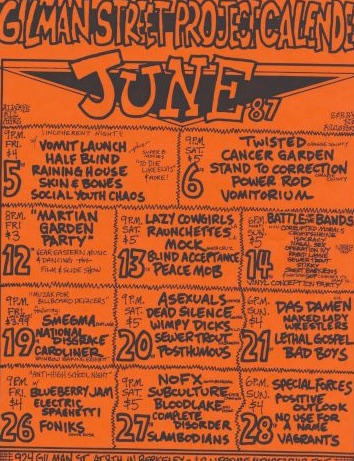 GILMAN STREET PROJECT CALENDE
JUNE '87
9PM.
FRI.
$4
5
"INCOHERENT NIGHT"
VOMIT LAUNCH
HALF BLIND
RAINING HOUSE
SKIN & BONES
SOCIAL YOUTH CHAOS
plus
SUPER 8
MOVIES
"TO DIE
LIKE ELVIS"
& MORE!
9PM.
SAT.
$5
6
TWISTED
CANCER GARDEN
STAND TO CORRECTION
POWER ROD
VOMITORIUM
8PM.
FRI.
$3
12
"MARTIAN
GARDEN
PARTY"
NEAR EASTERN MUSIC
& DANCING
FILM & SLIDE SHOW
9PM.
SAT.
$5
13
LAZY COWGIRLS
RAUNCHETTES
MOCK
BLIND ACCEPTANCE
PEACE MOB
6PM
SUN.
$5
14
BATTLE OF BANDS
CORRUPTED MORALS
VINYL CONCEPTION PARTY
9PM.
FRI.
$3.99
19
"MUZAK FOR
BILLBOARD DEFACERS"
SMEGMA
NATIONAL
DISGRACE
CAROLINER
9PM.
SAT.
$5
20
ASEXUALS
DEAD SILENCE
WIMPY DICKS
SEWER TROUT
POSTHUMOUS
6PM.
SUN.
$4
21
TAS DAMEN
NAKED LADY
WRESTLERS
LETHAL GOSPEL
BAD BOYS
9PM
FRI.
$4
26
"ANTI-HIGH SCHOOL NIGHT"
BLUEBERRY JAM
ELECTRIC
SPAGHETTI
FONIKS
9PM.
SAT.
$5
27
NOFX
SUBCULTURE
BLOODLAKE
COMPLETE
DISORDER
SLAMBODIANS
6PM.
SUN.
$4
28
SPECIAL FORCES
POSITIVE
OUTLOOK
NO USE FOR
A NAME
VAGRANTS
924 GILMAN ST. AT 8TH IN BERKELEY